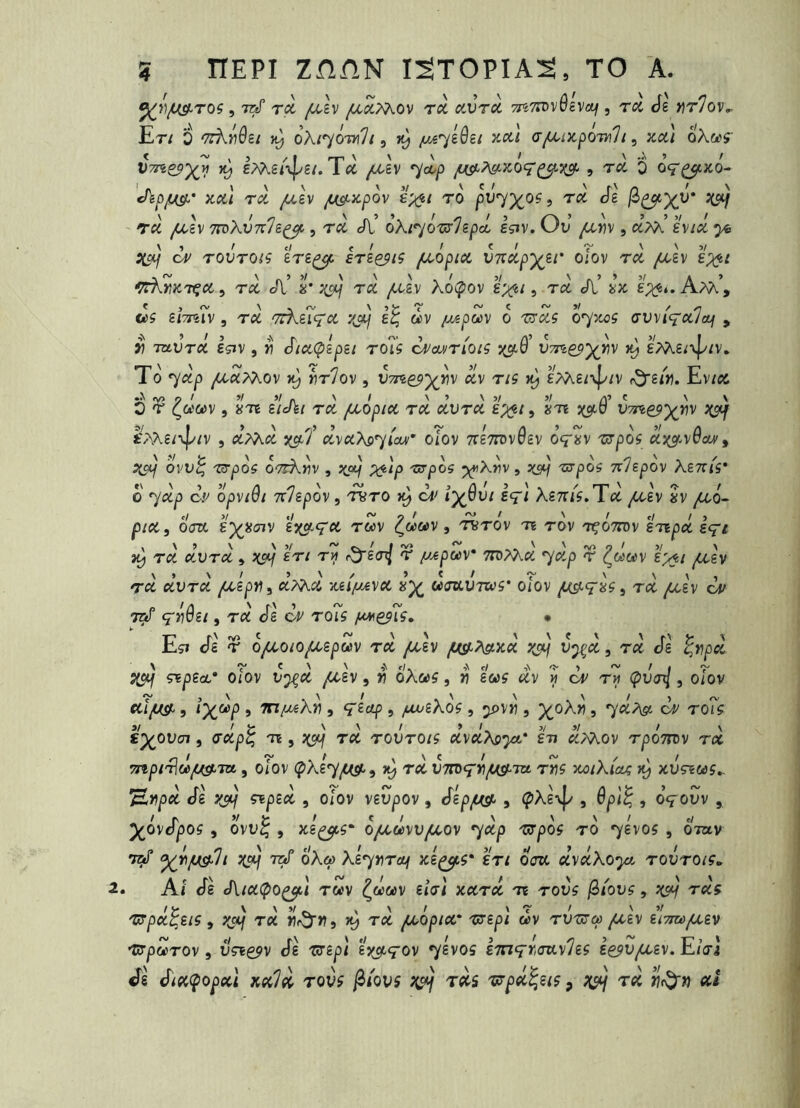 4 ΠΕΡΙ ΖΩΩΝ ΙΣΤΟΡΙΑΣ, ΤΟ Α.
χήματος, τῷ τὰ μὲν μᾶλλον τὰ αὐτὰ πεπονθέναι, τὰ δὲ ἧττον.
Ἔτι δὲ πλήθει καὶ ὀλιγότητι, καὶ μεγέθει καὶ σμικρότητι, καὶ ὅλως
ὑπεροχῇ καὶ ἐλλείψει. Τὰ μὲν γάρ μαλακόστρακα, τὰ δὲ ὀστρακό-
δερμα· καὶ τὰ μὲν μακρὸν ἔχει τὸ ῥύγχος, τὰ δὲ βραχύ· καὶ
τὰ μὲν πολύπτερα, τὰ δ' ὀλιγόπτερά ἐστιν. Οὐ μὴν, ἀλλ' ἔνιά γε
καὶ ἐν τούτοις ἕτερα ἑτέροις μόρια ὑπάρχει· οἷον τὰ μὲν ἔχει
πλῆκτρα, τὰ δ' οὔ· καὶ τὰ μὲν λόφον ἔχει, τὰ δ' οὐκ ἔχει. Ἀλλ',
ὡς εἰπεῖν, τὰ πλεῖστα καὶ ἐξ ὧν μερῶν ὁ πᾶς ὄγκος συνίσταται,
ἢ ταὐτά ἐστιν, ἢ διαφέρει τοῖς ἐναντίοις καθ' ὑπεροχὴν καὶ ἔλλειψιν.
Τὸ γὰρ μᾶλλον καὶ ἧττον, ὑπεροχὴν ἄν τις καὶ ἔλλειψιν θείη. Ἔνια
δὲ τῶν ζώων, οὔτε εἴδει τὰ μόρια τὰ αὐτὰ ἔχει, οὔτε καθ' ὑπεροχὴν καὶ
ἔλλειψιν, ἀλλὰ κατ' ἀναλογίαν· οἷον πέπονθεν ὀστοῦν πρὸς ἄκανθαν,
καὶ ὄνυξ πρὸς ὁπλὴν, καὶ χεὶρ πρὸς χηλὴν, καὶ πρὸς πτερὸν λεπίς·
ὃ γὰρ ἐν ὄρνιθι πτερὸν, τοῦτο καὶ ἐν ἰχθύι ἐστὶ λεπίς. Τὰ μὲν οὖν μό-
ρια, ὅσα ἔχουσιν ἕκαστα τῶν ζώων, τοῦτόν τε τὸν τρόπον ἕτερά ἐστι
καὶ τὰ αὐτὰ, καὶ ἔτι τῇ θέσει τῶν μερῶν· πολλὰ γὰρ τῶν ζώων ἔχει μὲν
τὰ αὐτὰ μέρη, ἀλλὰ κείμενα οὐχ ὡσαύτως· οἷον μαστοὺς, τὰ μὲν ἐν
τῷ στήθει, τὰ δὲ ἐν τοῖς μηροῖς.
Ἔστι δὲ τῶν ὁμοιομερῶν τὰ μὲν μαλακὰ καὶ ὑγρά, τὰ δὲ ξηρὰ
καὶ στερεά· οἷον ὑγρὰ μέν, ἢ ὅλως, ἢ ἕως ἂν ᾖ ἐν τῇ φύσει, οἷον
αἷμα, ἰχὼρ, πιμελὴ, στέαρ, μυελὸς, γονὴ, χολὴ, γάλα ἐν τοῖς
ἔχουσι, σάρξ τε, καὶ τὰ τούτοις ἀνάλογα· ἔτι ἄλλον τρόπον τὰ
περιττώματα, οἷον φλέγμα, καὶ τὰ ὑποστήματα τῆς κοιλίας καὶ κύστεως.
Ξηρὰ δὲ καὶ στερεὰ, οἷον νεῦρον, δέρμα, φλὲψ, θρὶξ, ὀστοῦν,
χόνδρος, ὄνυξ, κέρας· ὁμώνυμον γὰρ πρὸς τὸ γένος, ὅταν
τῷ χήματι καὶ τῷ ὅλῳ λέγηται κέρας· ἔτι ὅσα ἀνάλογα τούτοις.
2. Αἱ δὲ διαφοραὶ τῶν ζώων εἰσὶ κατά τε τοὺς βίους, καὶ τὰς
πράξεις, καὶ τὰ ἤθη, καὶ τὰ μόρια· περὶ ὧν τύπῳ μὲν εἴπωμεν
πρῶτον, ὕστερον δὲ περὶ ἕκαστον γένος ἐπιστήσαντες ἐροῦμεν. Εἰσὶ
δὲ διαφοραὶ κατὰ τοὺς βίους καὶ τὰς πράξεις, καὶ τὰ ἤθη αἱ